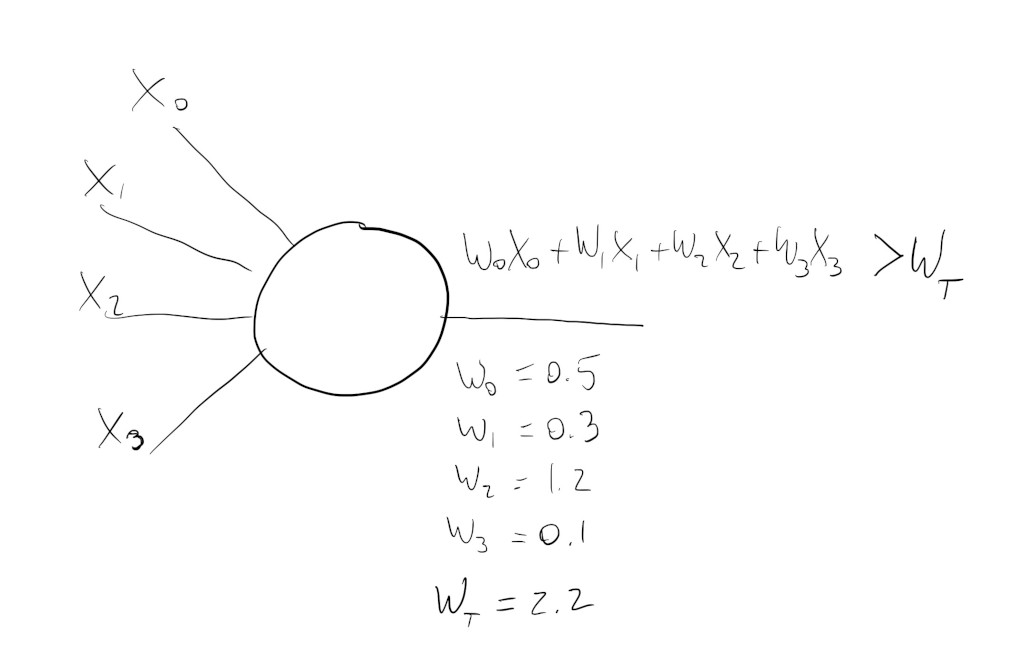 X₀
X₁
X₂
X₃
W₀X₀ + W₁X₁ + W₂X₂ + W₃X₃ > W_T
W₀ = 0.5
W₁ = 0.3
W₂ = 1.2
W₃ = 0.1
W_T = 2.2